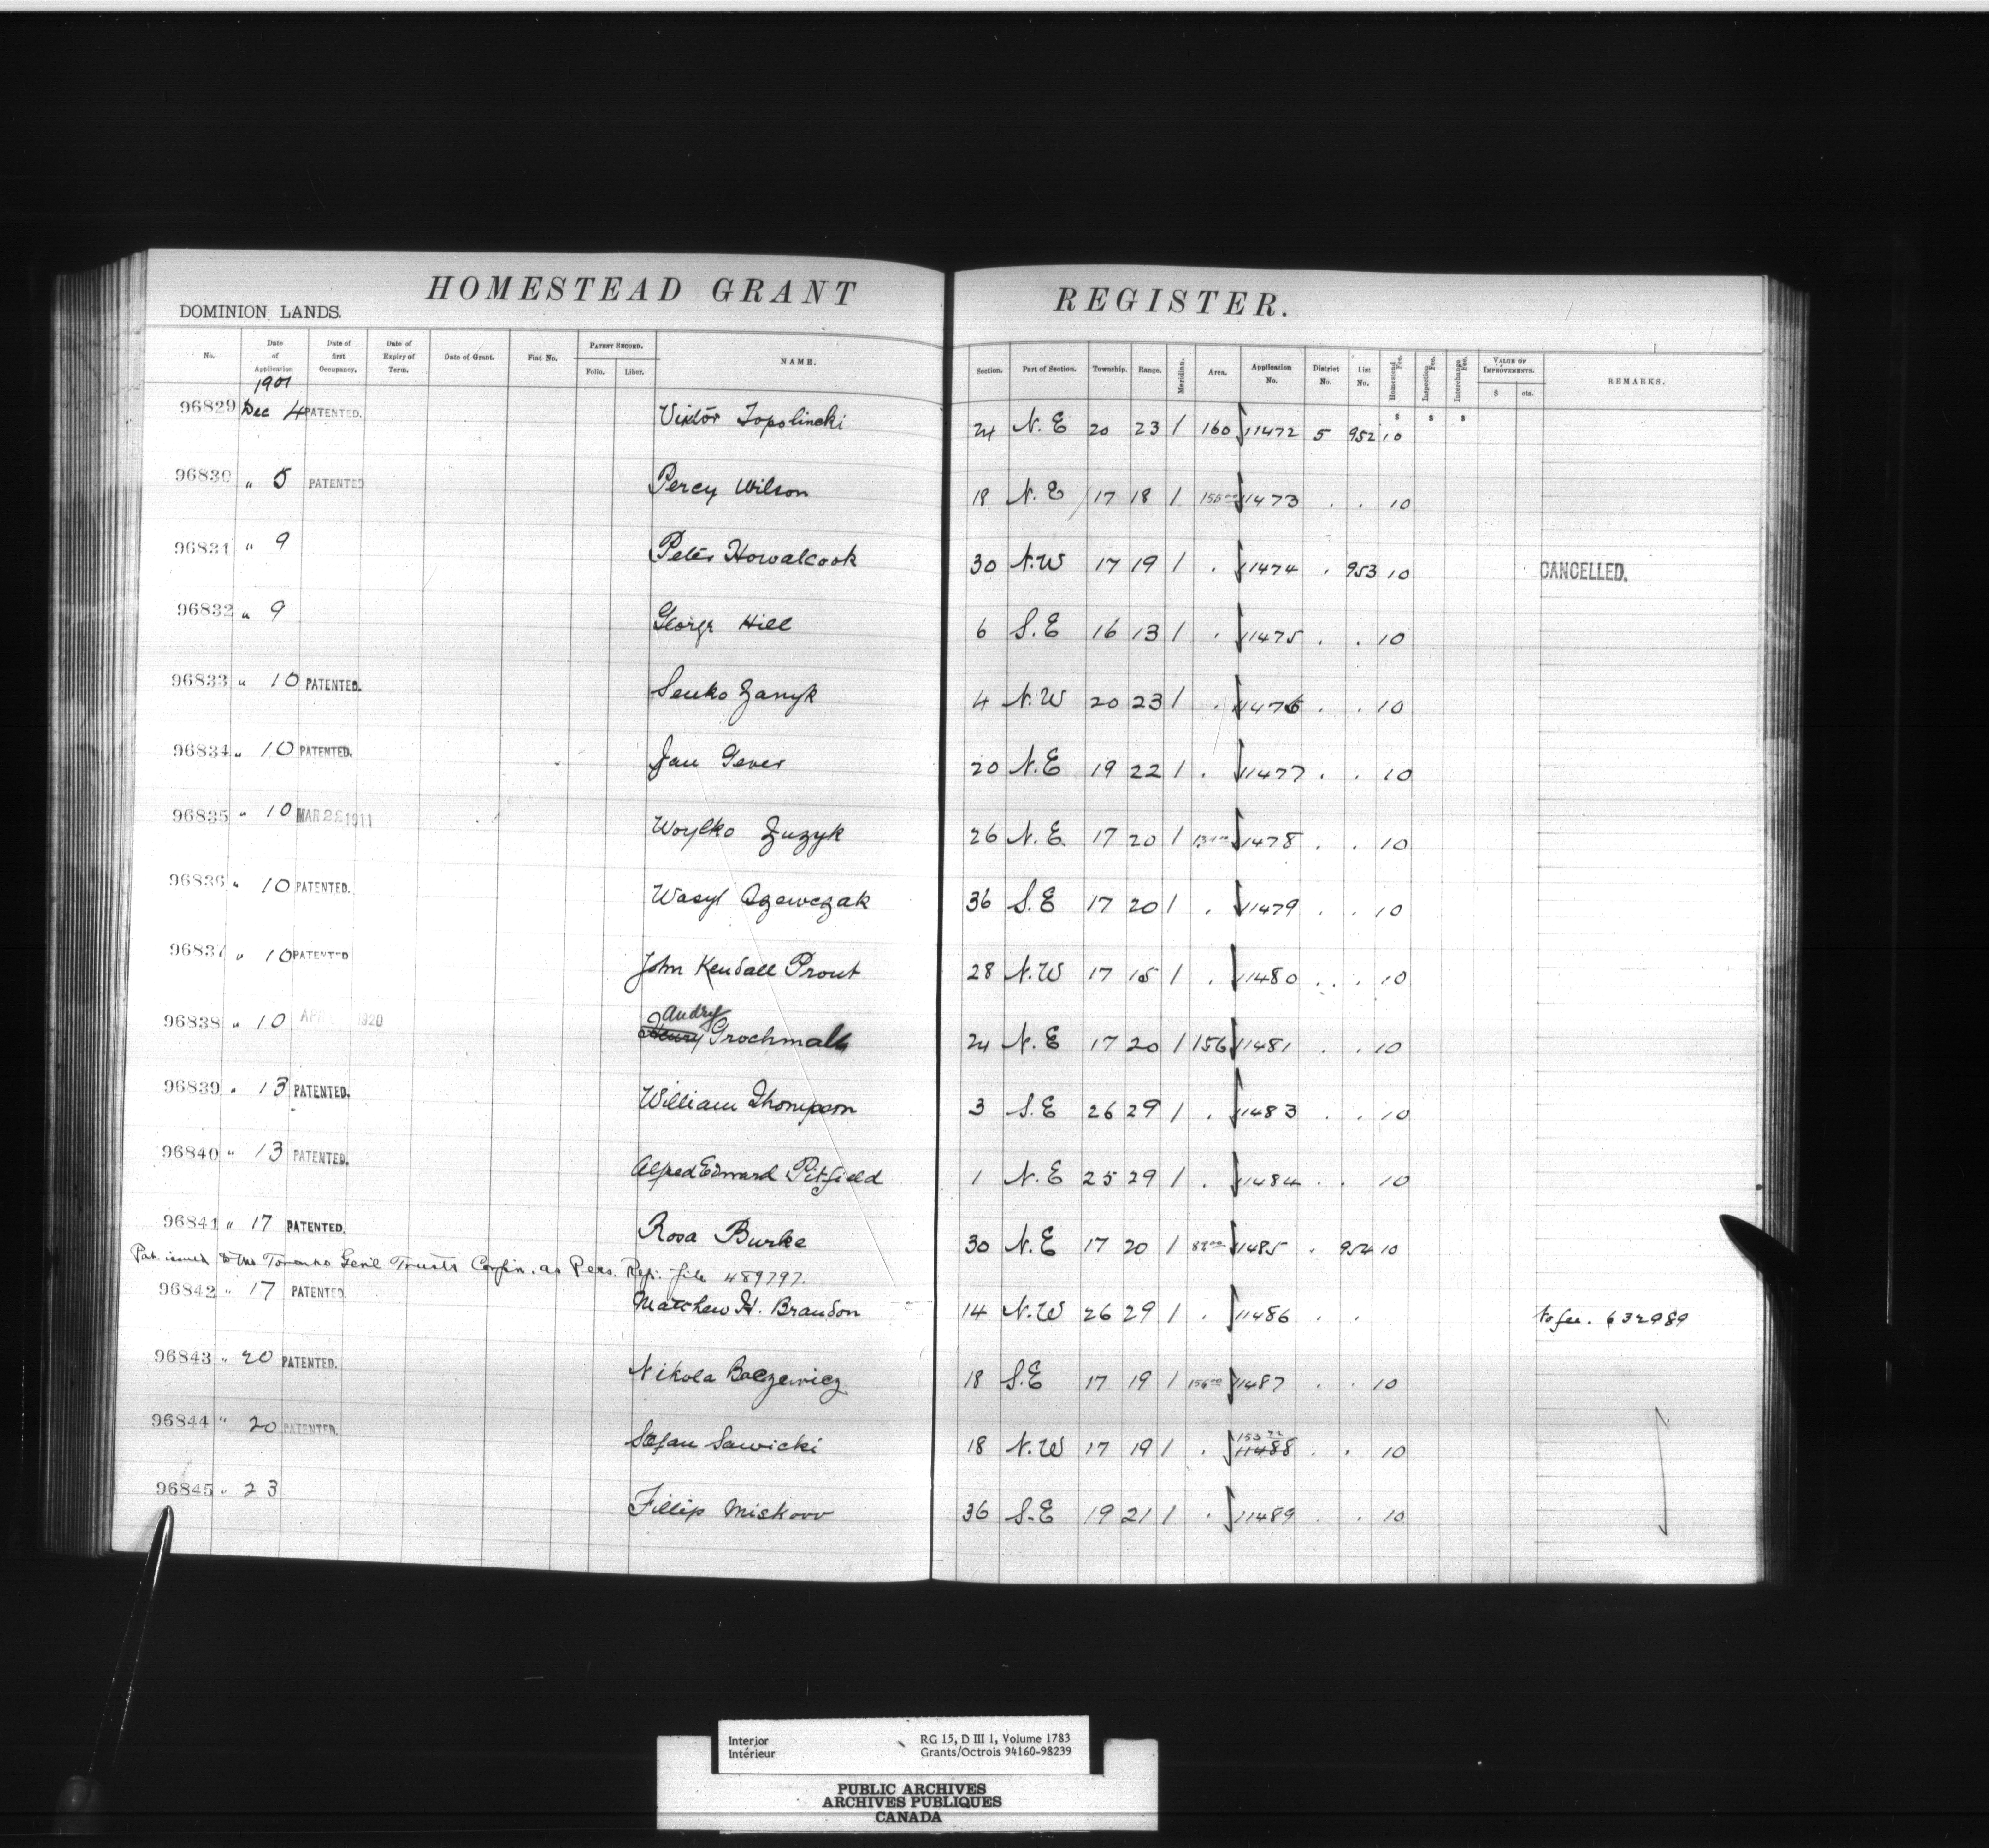 HOMESTEAD GRANT REGISTER.
DOMINION LANDS.
No. Date of Application Date of first Occupancy. Date of Expiry of Term. Date of Grant. Fiat No. PATENT RECORD. Folio. Liber. NAME. Section. Part of Section. Township. Range. Meridian. Area. Application No. District No. List No. Homestead Fee. Inspection Fee. Interchange Fee. VALUE OF IMPROVEMENTS. $ cts. REMARKS.
1901
96829 Dec 4 PATENTED. Viktor Topolincki 24 N.E 20 23 1 160 11472 5 952 10
96830 " 5 PATENTED Percy Wilson 18 N.E 17 18 1 11473 . . 10
96831 " 9 Peter Howalcook 30 N.W 17 19 1 . 11474 . 953 10 CANCELLED.
96832 " 9 George Hill 6 S.E 16 13 1 . 11475 . . 10
96833 " 10 PATENTED. Senko Zanyk 4 N.W 20 23 1 . 11476 . . 10
96834 " 10 PATENTED. Jan Gever 20 N.E 19 22 1 . 11477 . . 10
96835 " 10 MAR 22 1911 Woytko Zuzyk 26 N.E. 17 20 1 11478 . . 10
96836 " 10 PATENTED. Wasyl Szewczak 36 S.E 17 20 1 . 11479 . . 10
96837 " 10 PATENTED John Kendall Prout 28 N.W 17 15 1 . 11480 . . 10
Andry
96838 " 10 1920 Henry Grochmall 24 N.E 17 20 1 156 11481 . . 10
96839 " 13 PATENTED. William Thompson 3 S.E 26 29 1 . 11483 . . 10
96840 " 13 PATENTED. Alfred Edward Pitfield 1 N.E 25 29 1 . 11484 . . 10
96841 " 17 PATENTED. Rosa Burke 30 N.E 17 20 1 11485 . 954 10
Pat. issued to the Toronto Gen'l Trusts Corp'n. as Pers. Rep. file 489797.
96842 " 17 PATENTED Matthew H. Brandon 14 N.W 26 29 1 . 11486 . . No fee. 632989
96843 " 20 PATENTED. Nikola Balzewicz 18 S.E 17 19 1 156 00 11487 . . 10
153
96844 " 20 PATENTED. Stefan Sawicki 18 N.W 17 19 1 . 11488 . . 10
96845 " 23 Fillip Miskow 36 S.E 19 21 1 . 11489 . . 10
Interior RG 15, D III 1, Volume 1783
Intérieur Grants/Octrois 94160-98239
PUBLIC ARCHIVES
ARCHIVES PUBLIQUES
CANADA